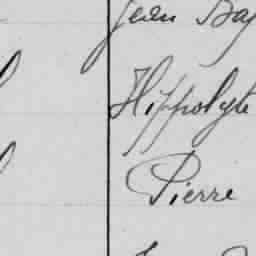 Jean Bap
Hippolyte
Pierre